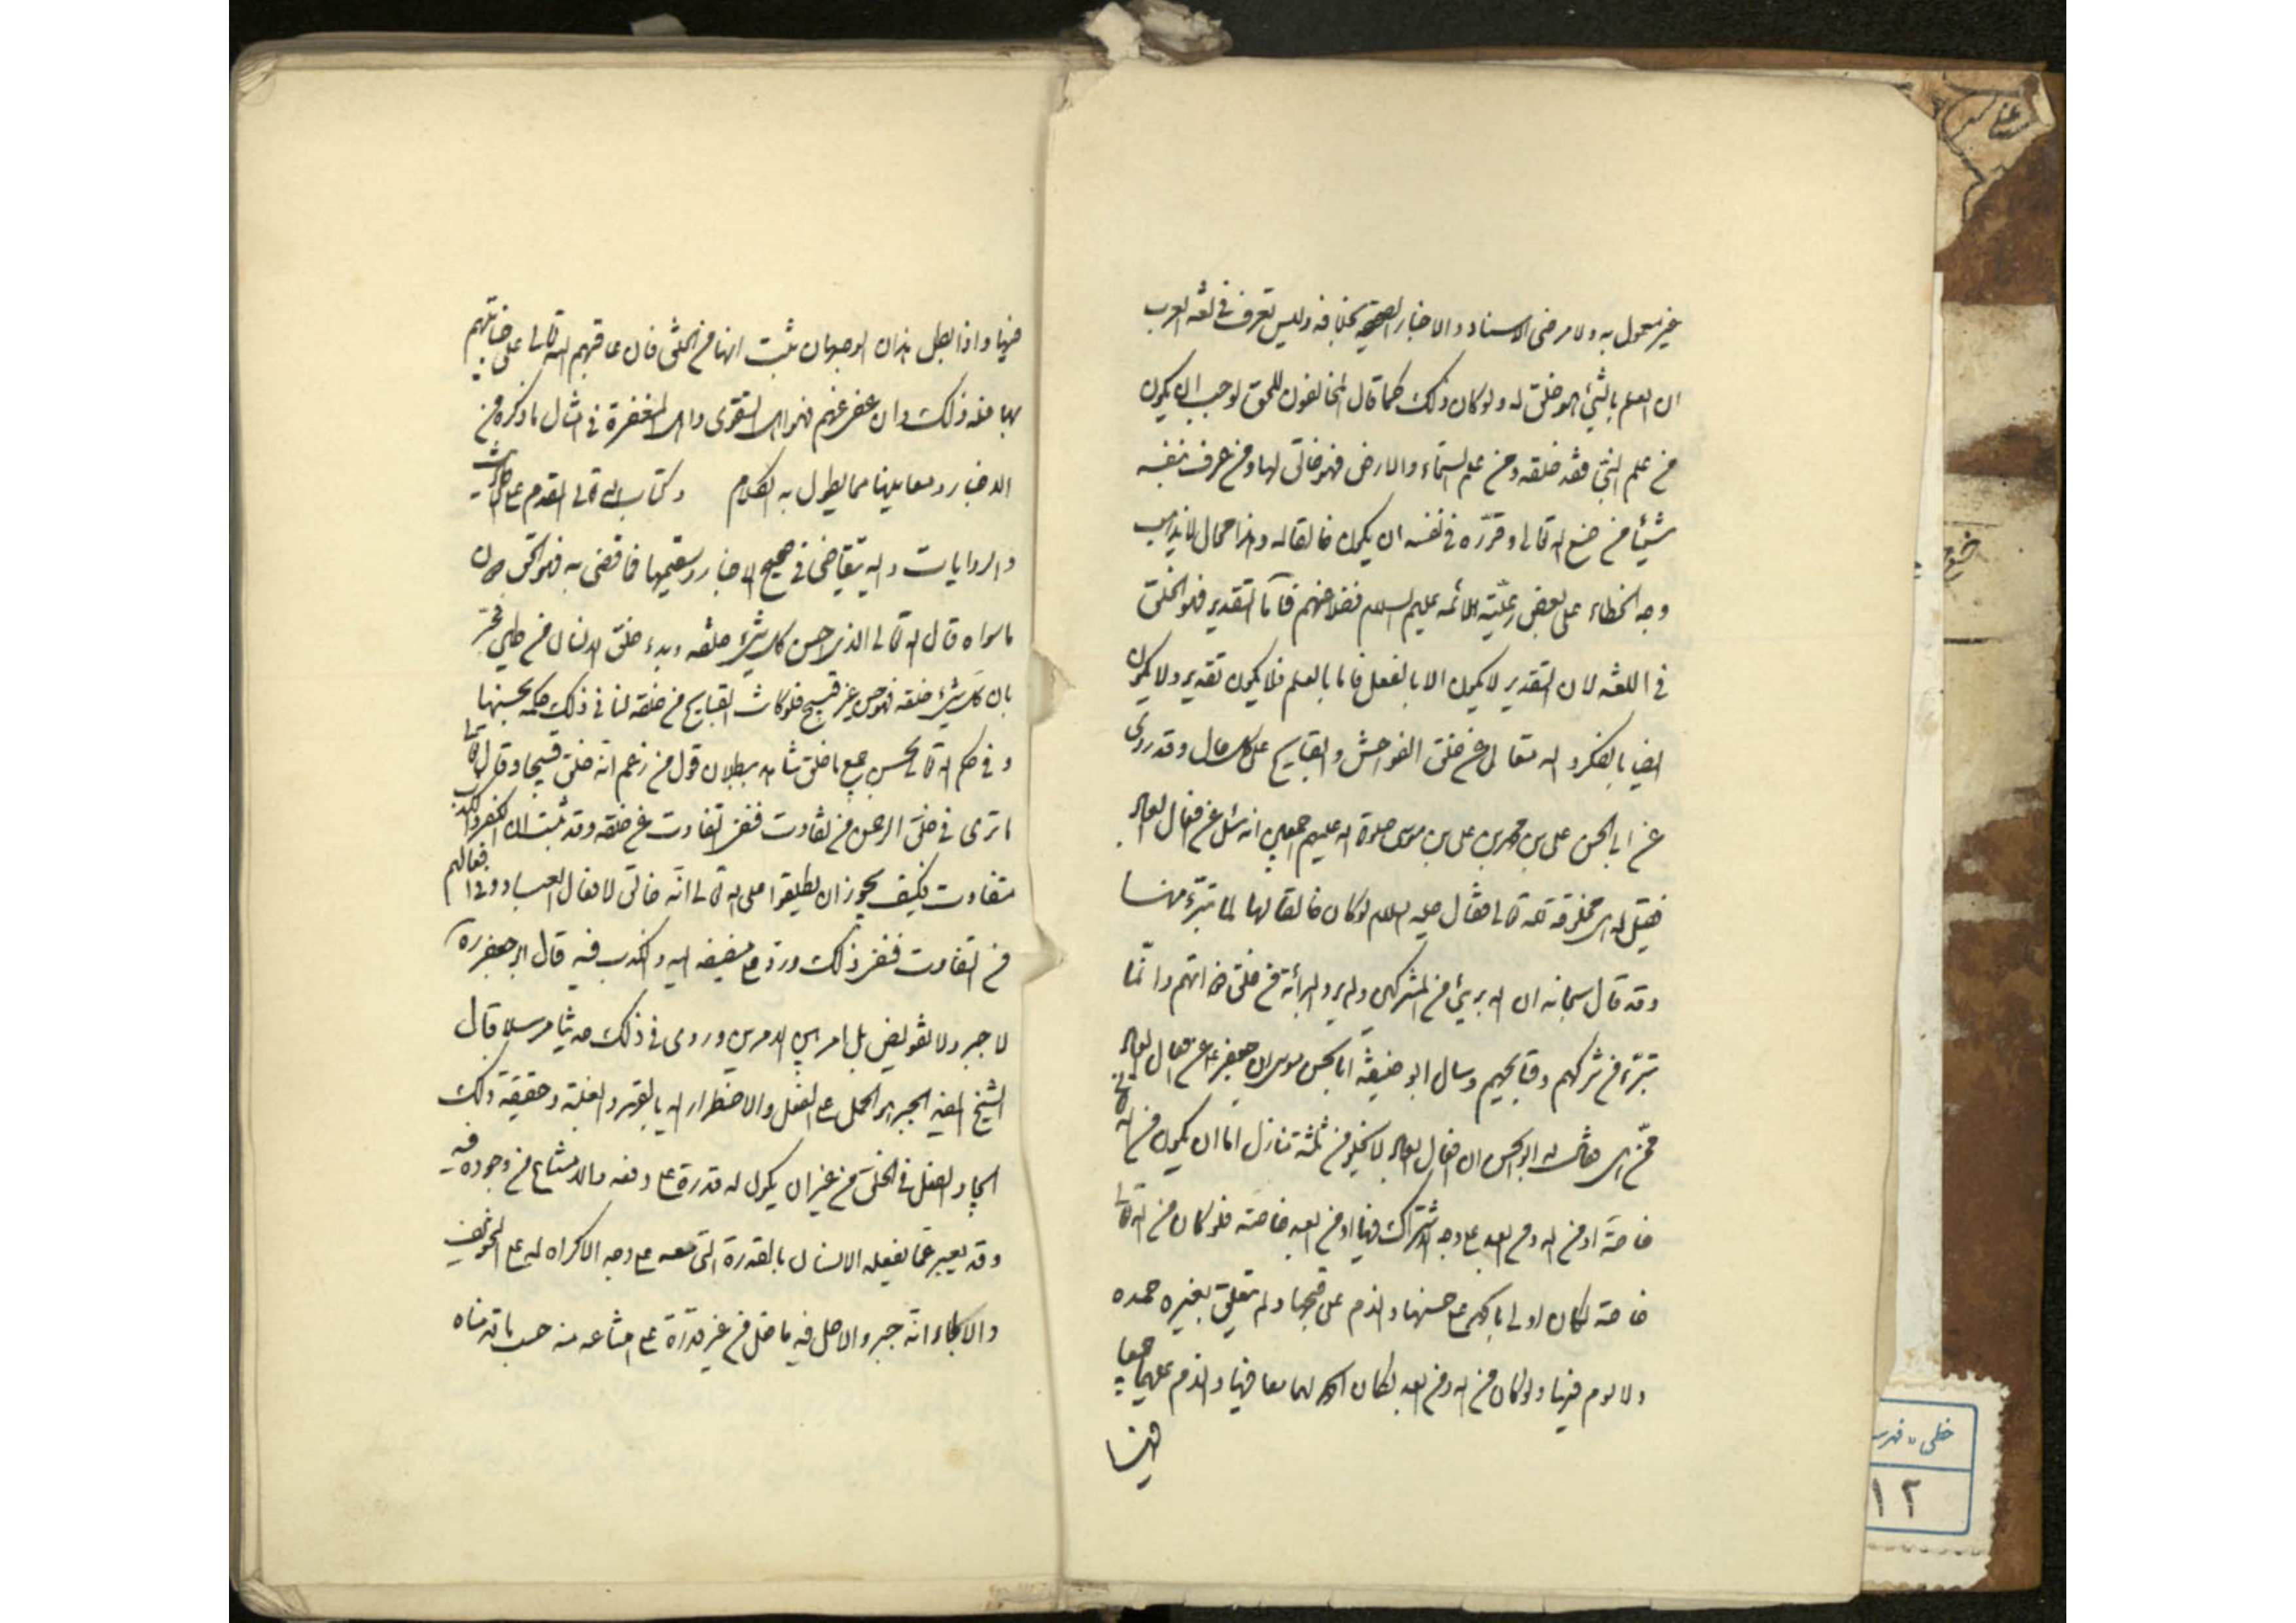 غير معمول به ولا مرضى الاسناد والاخبار الصحيحة بخلافه وليس تعرف في لغة العرب
ان العلم بالشئ هو خلق له ولو كان ذلك كما قال المخالفون للحق لوجب ان يكون
من علم النبي فقد خلقه ومن علم السماء والارض فهو خالق لها ومن عرف بنفسه
شيئا من صنع الله تعالى وقرره في نفسه ان يكون خالقا له وهذا محال لا يذهب
وجه الخطاء على بعض رعية الائمه عليهم السلام فضلا عنهم فاما التقدير فهو الخلق
في اللغه لان التقدير لا يكون الا بالفعل فاما بالعلم فلا يكون تقدير ولا يكون
ايضا بالفكر والله متعالى عن خلق الفواحش والقبايح على كل حال وقد روى
عن ابي الحسن على بن محمد بن على بن موسى صلوة الله عليهم اجمعين انه سئل عن افعال العباد
فقيل له اهى مخلوقة لله تعالى فقال عليه السلام لو كان خالقا لها لما تبرء منها
وقد قال سبحانه ان الله برئ من المشركين ولم يرد البرائة من خلق ذواتهم وانما
تبرء من شركهم وقبايحهم وسال ابو حنيفة ابا الحسن موسى بن جعفر ع عن افعال العباد
ممن هى فقال له ابو الحسن ان افعال العباد لا يخلو من ثلثة منازل اما ان يكون من الله تعالى
خاصة او من الله ومن العبد على وجه الاشتراك فيها او من العبد خاصة فلو كان من الله تعالى
خاصة لكان اولى بالحمد على حسنها والذم على قبحها ولم يتعلق بغيره حمد
ولا لوم فيها ولو كان من الله ومن العبد لكان الحمد لهما معا فيها والذم عليهما جميعا
فيها
فيها واذا بطل هذان الوجهان ثبت انها من الخلق فان عاقبهم الله تعالى على جنايتهم
بها فله ذلك وان عفى عنهم فهو اهل التقوى واهل المغفرة في امثال ما ذكره من
الاخبار ومعانيها مما يطول به الكلام وكتاب الله تعالى المقدم على الاحاديث
والروايات واليه يتقاضى في صحيح الاخبار وسقيمها فما قضى به فهو الحق دون
ما سواه قال الله تعالى الذى احسن كل شئ خلقه وبدء خلق الانسان من طين فخبر
بان كل شئ خلقه فهو حسن غير قبيح فلو كانت القبايح من خلقه لنافى ذلك حكمه بحسنها
وفى حكم الله تعالى بحسن جميع ما خلق شاهد ببطلان قول من زعم انه خلق قبيحا وقال تعالى
ما ترى في خلق الرحمن من تفاوت فنفى التفاوت عن خلقه وقد ثبت ان الكفر والكذب
متفاوت فكيف يجوز ان يطلقوا على الله تعالى انه خالق لافعال العباد وفى افعالهم
من التفاوت فنفى ذلك ورد على مضيفه اليه والكذب فيه قال ابو جعفر ره
لا جبر ولا تفويض بل امر بين الامرين وروى في ذلك حديثا مرسلا قال
الشيخ المفيد الجبر هو الحمل على الفعل والاضطرار اليه بالقهر والغلبة وحقيقة ذلك
ايجاد الفعل في الخلق من غير ان يكون له قدرة على دفعه والامتناع من وجوده فيه
وقد يعبر عما يفعله الانسان بالقدرة التى معه على وجه الاكراه له على التخويف
والالجاء انه جبر والاصل فيه ما فعل من غير قدرة على امتناعه منه حسب ما قدمناه
خطى - فهرست
١٢